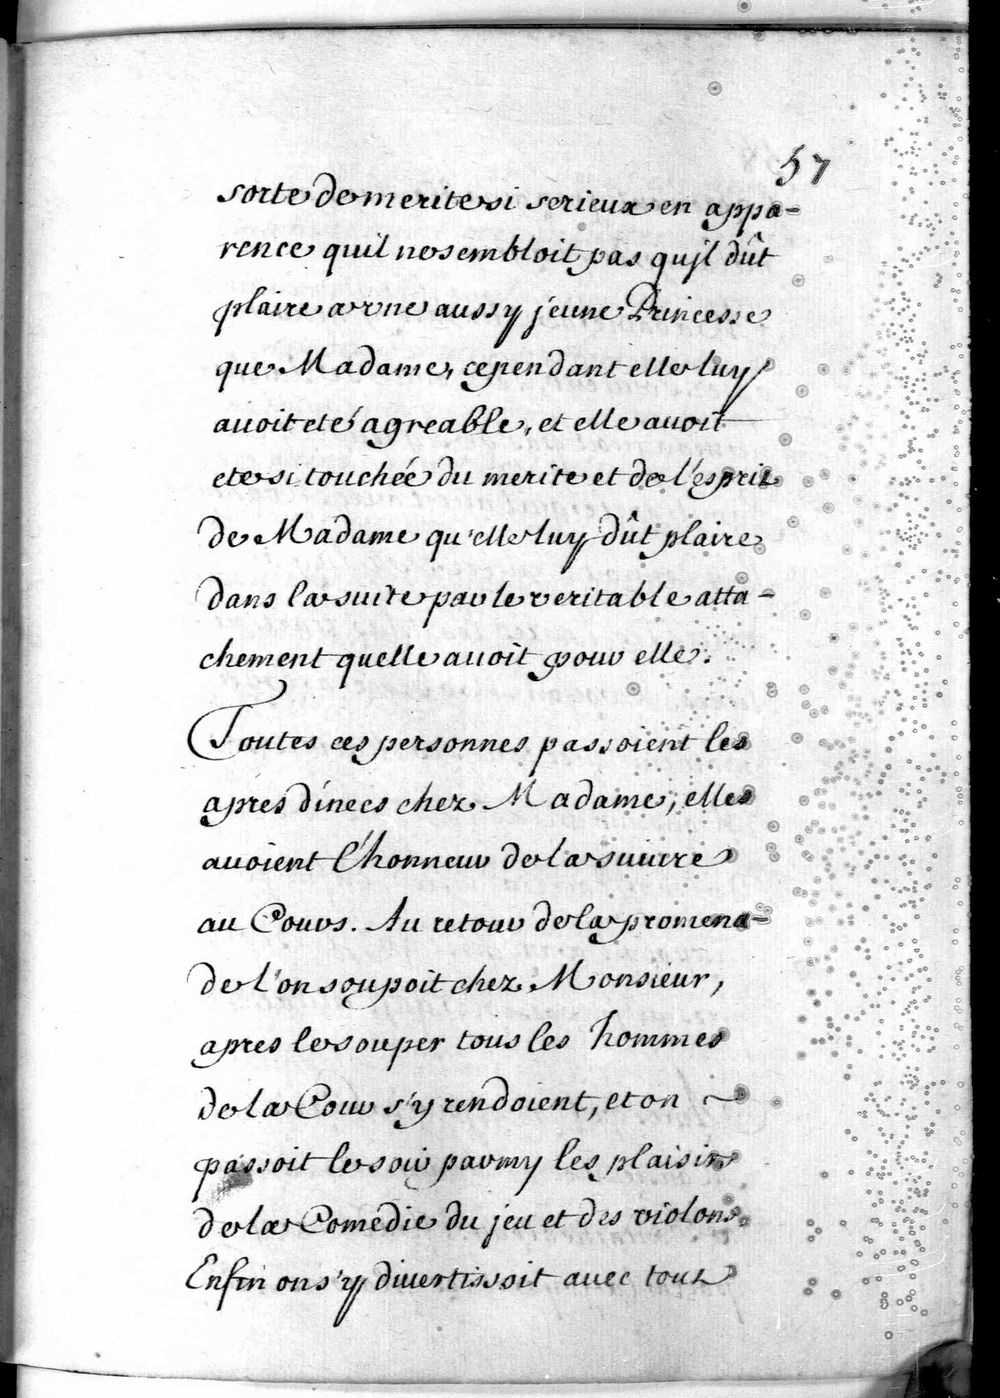 57
sorte de merite si serieux en appa-
rence quil ne sembloit pas quil dût
plaire a vne aussy jeune Princesse
que Madame, cependant elle luy
auoit eté agreable, et elle auoit
ete si touchée du merite et de l'esprit
de Madame qu'elle luy dût plaire
dans la suite par le veritable atta-
chement quelle auoit pour elle.
Toutes ces personnes passoient les
apres dinées chez Madame, elles
auoient l'honneur de la suiure
au Cours. Au retour de la promena-
de l'on soupoit chez Monsieur,
apres le souper tous les hommes
de la Cour s'y rendoient, et on
passoit le soir parmy les plaisirs
de la Comedie du jeu et des violons
Enfin on s'y diuertissoit auec tout